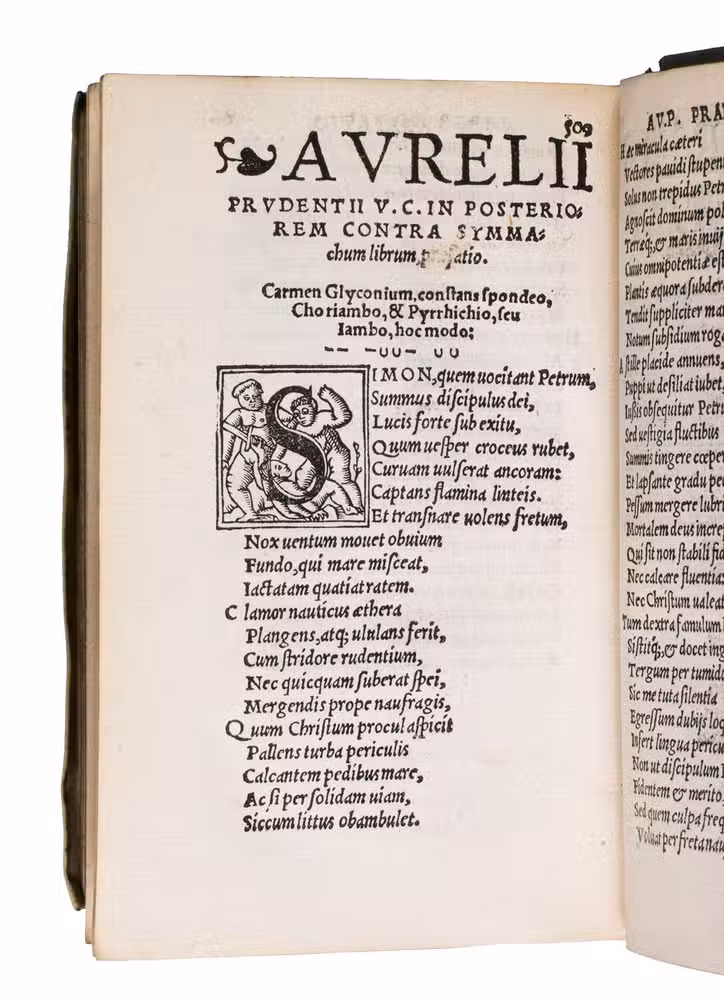 509
AVRELII
PRVDENTII V. C. IN POSTERIO:
REM CONTRA SYMMA:
chum librum, præfatio.
Carmen Glyconium, constans spondeo,
Choriambo, & Pyrrhichio, seu
Iambo, hoc modo:
-- -UU- UU
SIMON, quem uocitant Petrum,
Summus discipulus dei,
Lucis forte sub exitu,
Quum uesper croceus rubet,
Curuam uulserat ancoram:
Captans flamina linteis.
Et transnare uolens fretum,
Nox uentum mouet obuium
Fundo, qui mare misceat,
Iactatam quatiat ratem.
Clamor nauticus æthera
Plangens, atq; ululans ferit,
Cum stridore rudentium,
Nec quicquam suberat spei,
Mergendis prope naufragis,
Quum Christum procul aspicit
Pallens turba periculis
Calcantem pedibus mare,
Ac si per solidam uiam,
Siccum littus obambulet.
AV. P. PRAE
Hæc miracula cæteri
Vectores pauidi stupent
Solus non trepidus Petr
Agnoscit dominum pol
Terræq;, & maris inuij
Cuius omnipotentiæ est
Plantis æquora subder
Tendit suppliciter ma
Notum subsidium rog
Ast ille placide annuens,
Puppi ut desiliat iubet,
Iussis obsequitur Petru
Sed uestigia fluctibus
Summis tingere cœper
Et lapsante gradu pe
Pessum mergere lubri
Mortalem deus increp
Qui sit non stabili fid
Nec calcare fluentia
Nec Christum ualeat
Tum dextra famulum
Sistitq;, & docet ing
Tergum per tumid
Sic me tuta silentia
Egressum dubijs loq
Infert lingua pericu
Non ut discipulum
Fidentem & merito
Sed quem culpa freq
Voluat per freta nau